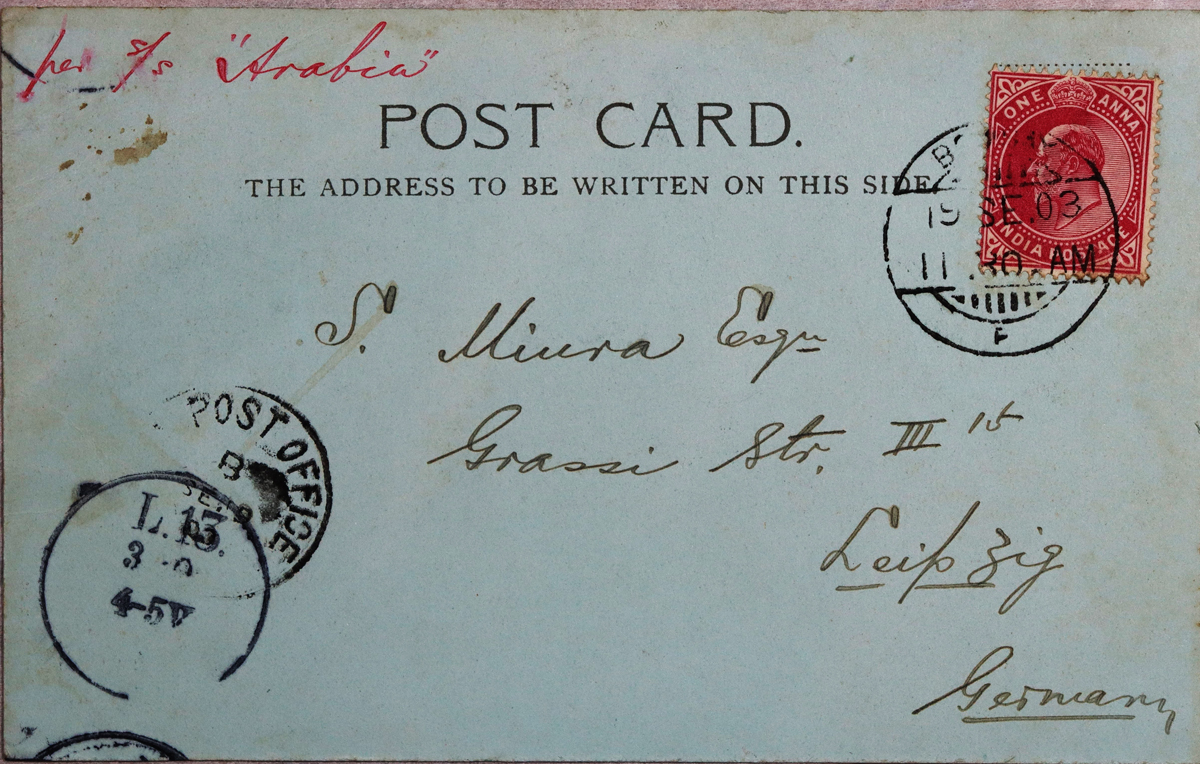 per s/s "Arabia"
POST CARD.
THE ADDRESS TO BE WRITTEN ON THIS SIDE
ONE ANNA
INDIA POSTAGE
19 SE .03
11.30 AM
F
S. Miura Esqr
Grassi Str. III 15
Leipzig
Germany
POST OFFICE
B
L.13.
4-5V